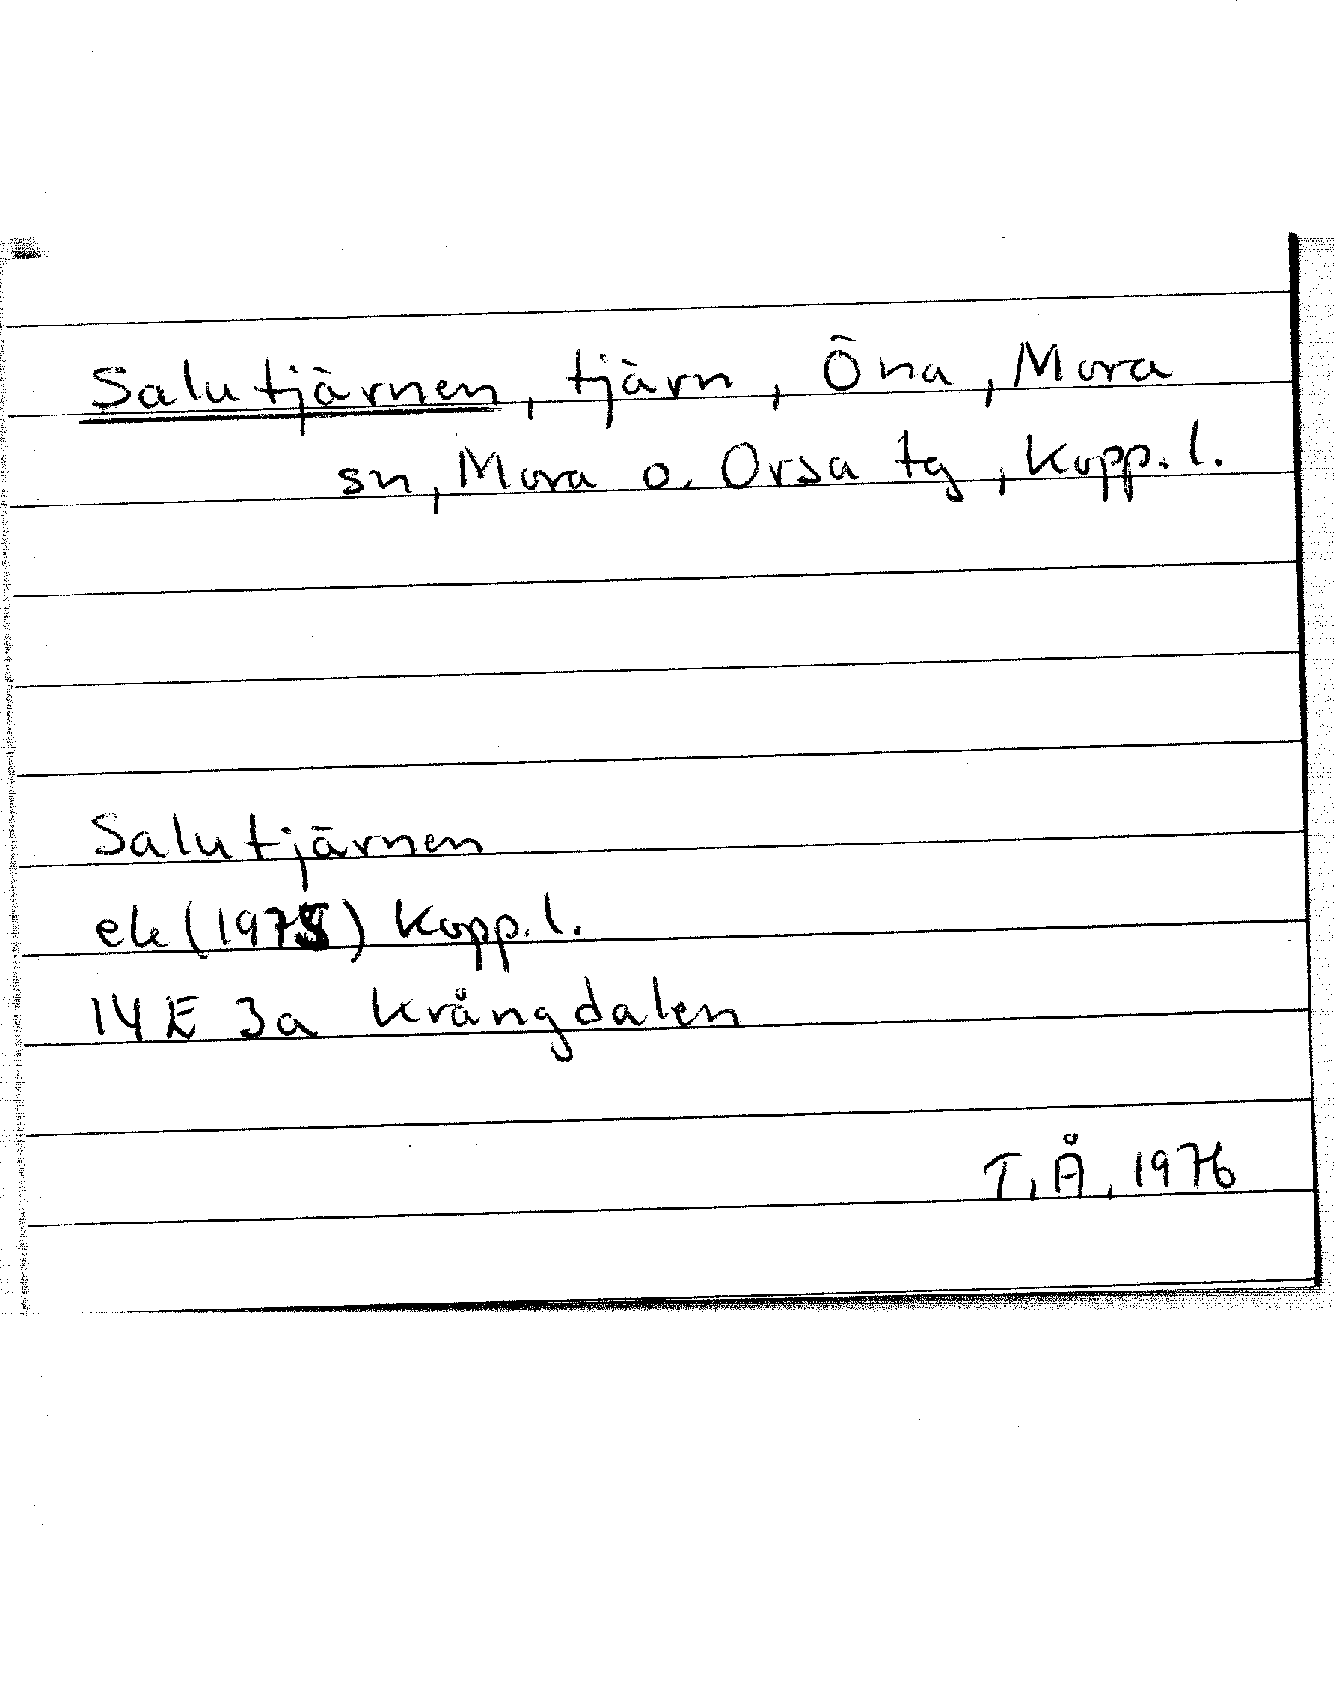 Salutjärnen, tjärn, Öna, Mora
sn, Mora o. Orsa tg, Kopp. l.
Salutjärnen
ek (1975) Kopp. l.
14E 3a Krångdalen
T. Å. 1976